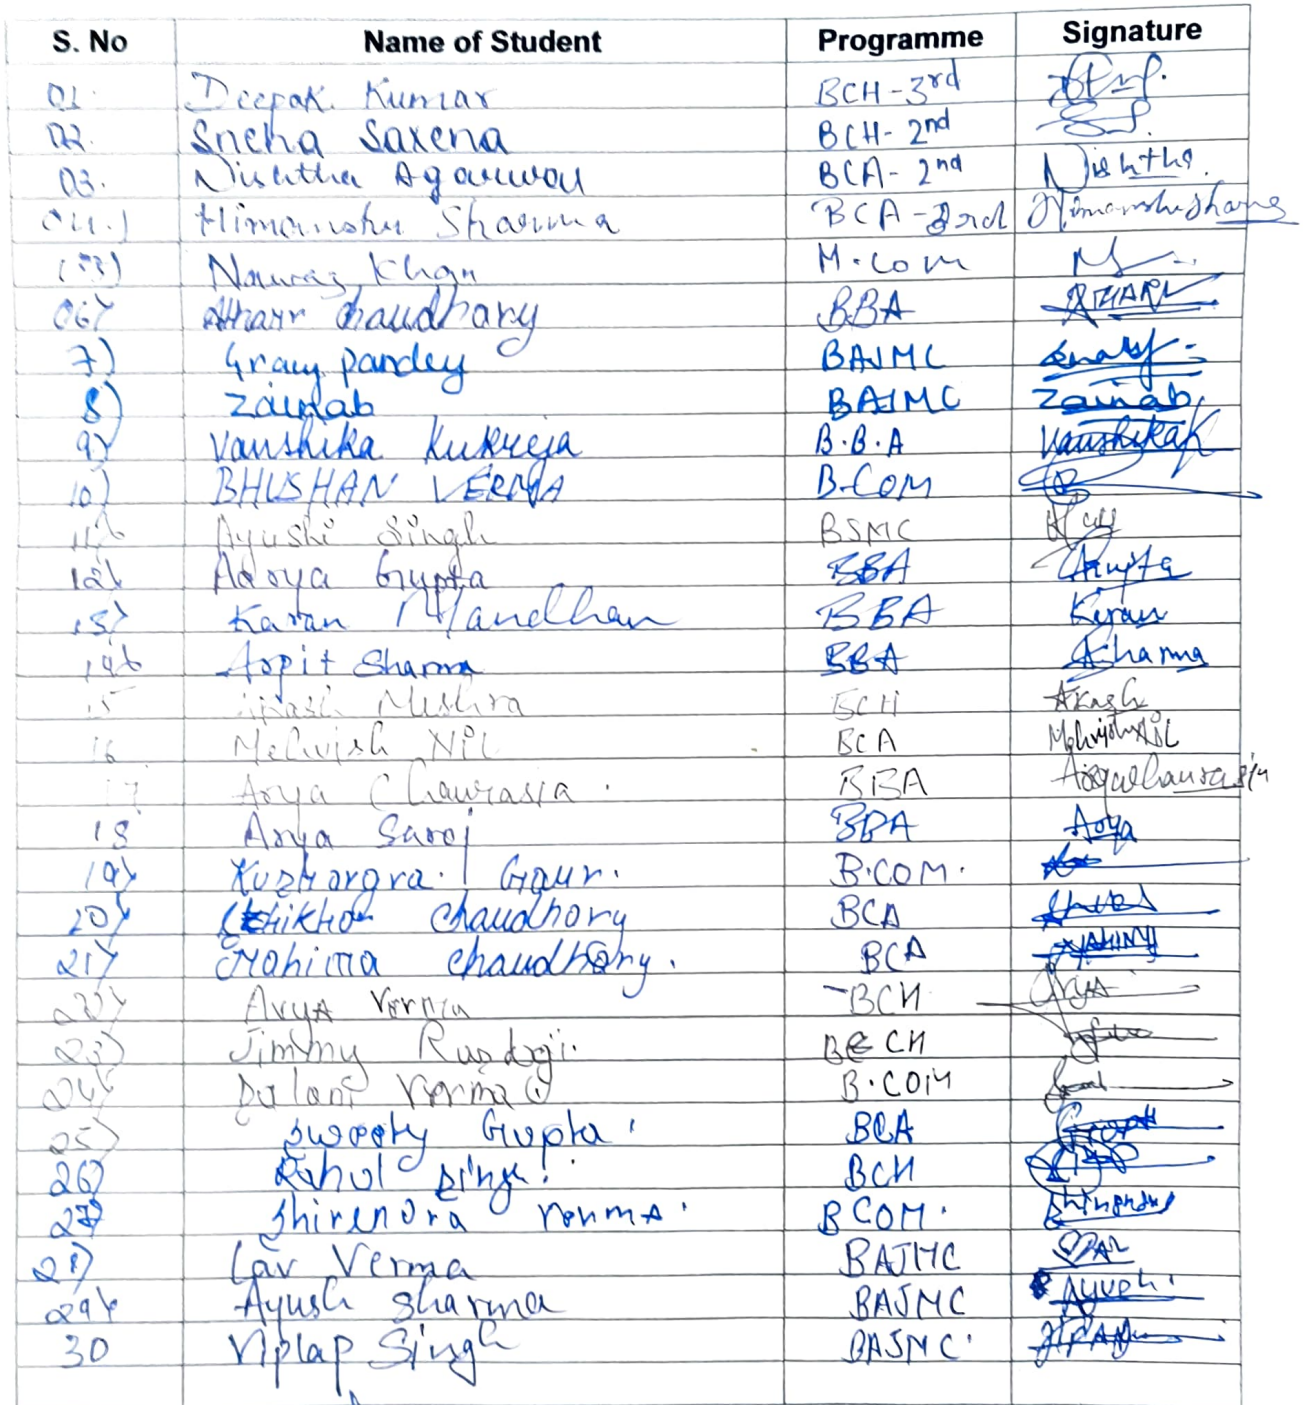 S. No Name of Student Programme Signature
01. Deepak Kumar BCH-3rd
02. Sneha Saxena BCH-2nd
03. Nishtha Agarwal BCA-2nd Nishtha.
04.) Himanshu Sharma BCA-3rd Himanshu Sharma
Nawraz Khan M.com
06) Athar Chaudhary BBA
7) pandey BAJMC
8) Zainab BAJMC Zainab
9) Vanshika Kukreja B.B.A Vanshika K
10) BHUSHAN VERMA B.COM
11) Ayushi Singh BSMC
12) Aarya Gupta BBA Gupta
13) Karan Mandhan BBA Karan
14) Arpit Sharma BBA Asharma
15 Akash Mishra BCH Akash
16 Mehvish Nil BCA Mehvish Nil
17 Arya Chaurasia. BBA Arya Chaurasia
18 Arya Saroj BBA Arya
19) Kushargra. Gaur. B.COM.
20) Shikha Chaudhary BCA
21) Mahima Chaudhary. BCA MAHIMA
22) Arya Verma BCH Arya
23) Jimmy Rustogi. BCH
24) Verma B.COM
25) Sweety Gupta. BCA
26) Rahul Singh. BCH
27) Shirendra Verma. BCOM. Shirendra
28) Lav Verma BAJMC
29) Ayush Sharma BAJMC Ayush.
30 Viplap Singh BAJMC.